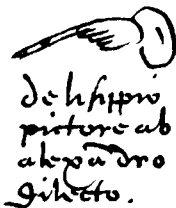 de lisippo
pictore ab
alexādro
dilecto.